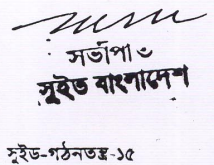 সভাপতি
সুইড বাংলাদেশ
সুইড-গঠনতন্ত্র-১৫